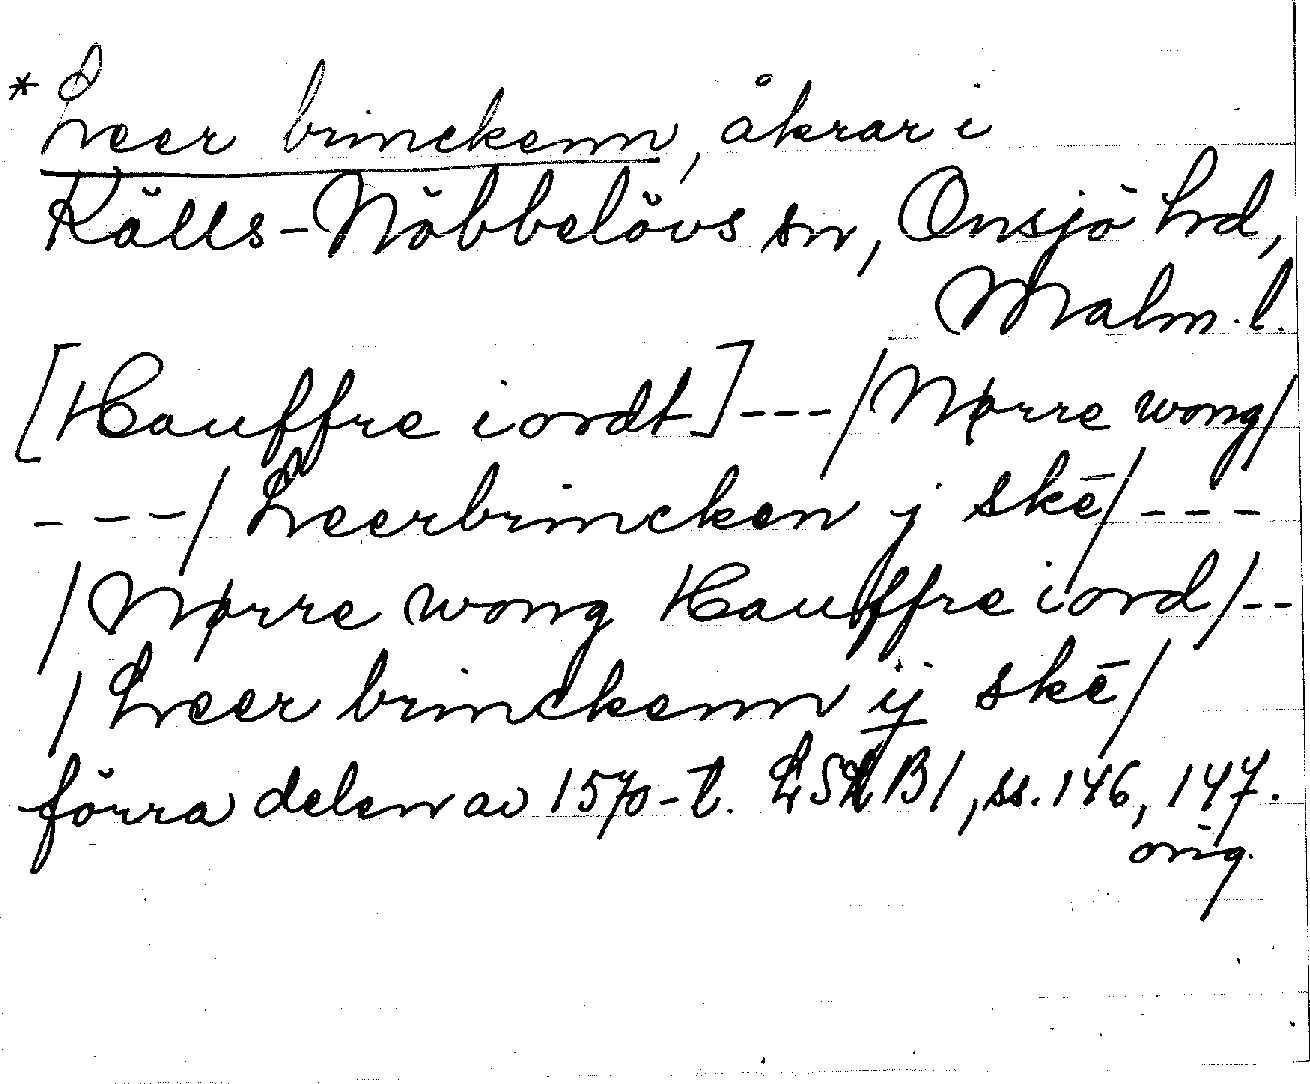 * Leer brinckenn, åkrar i
Källs-Nöbbelövs sn, Onsjö hd,
Malm. l.
[Hauffre iordt] --- /Nørre wong/
--- / Leerbrincken j skē/ ---
/Nørre wong Hauffre iord/--
/ Leer brinckenn ij skē/
förra delen av 1570-t. LSLB1, ss. 146, 147.
orig.